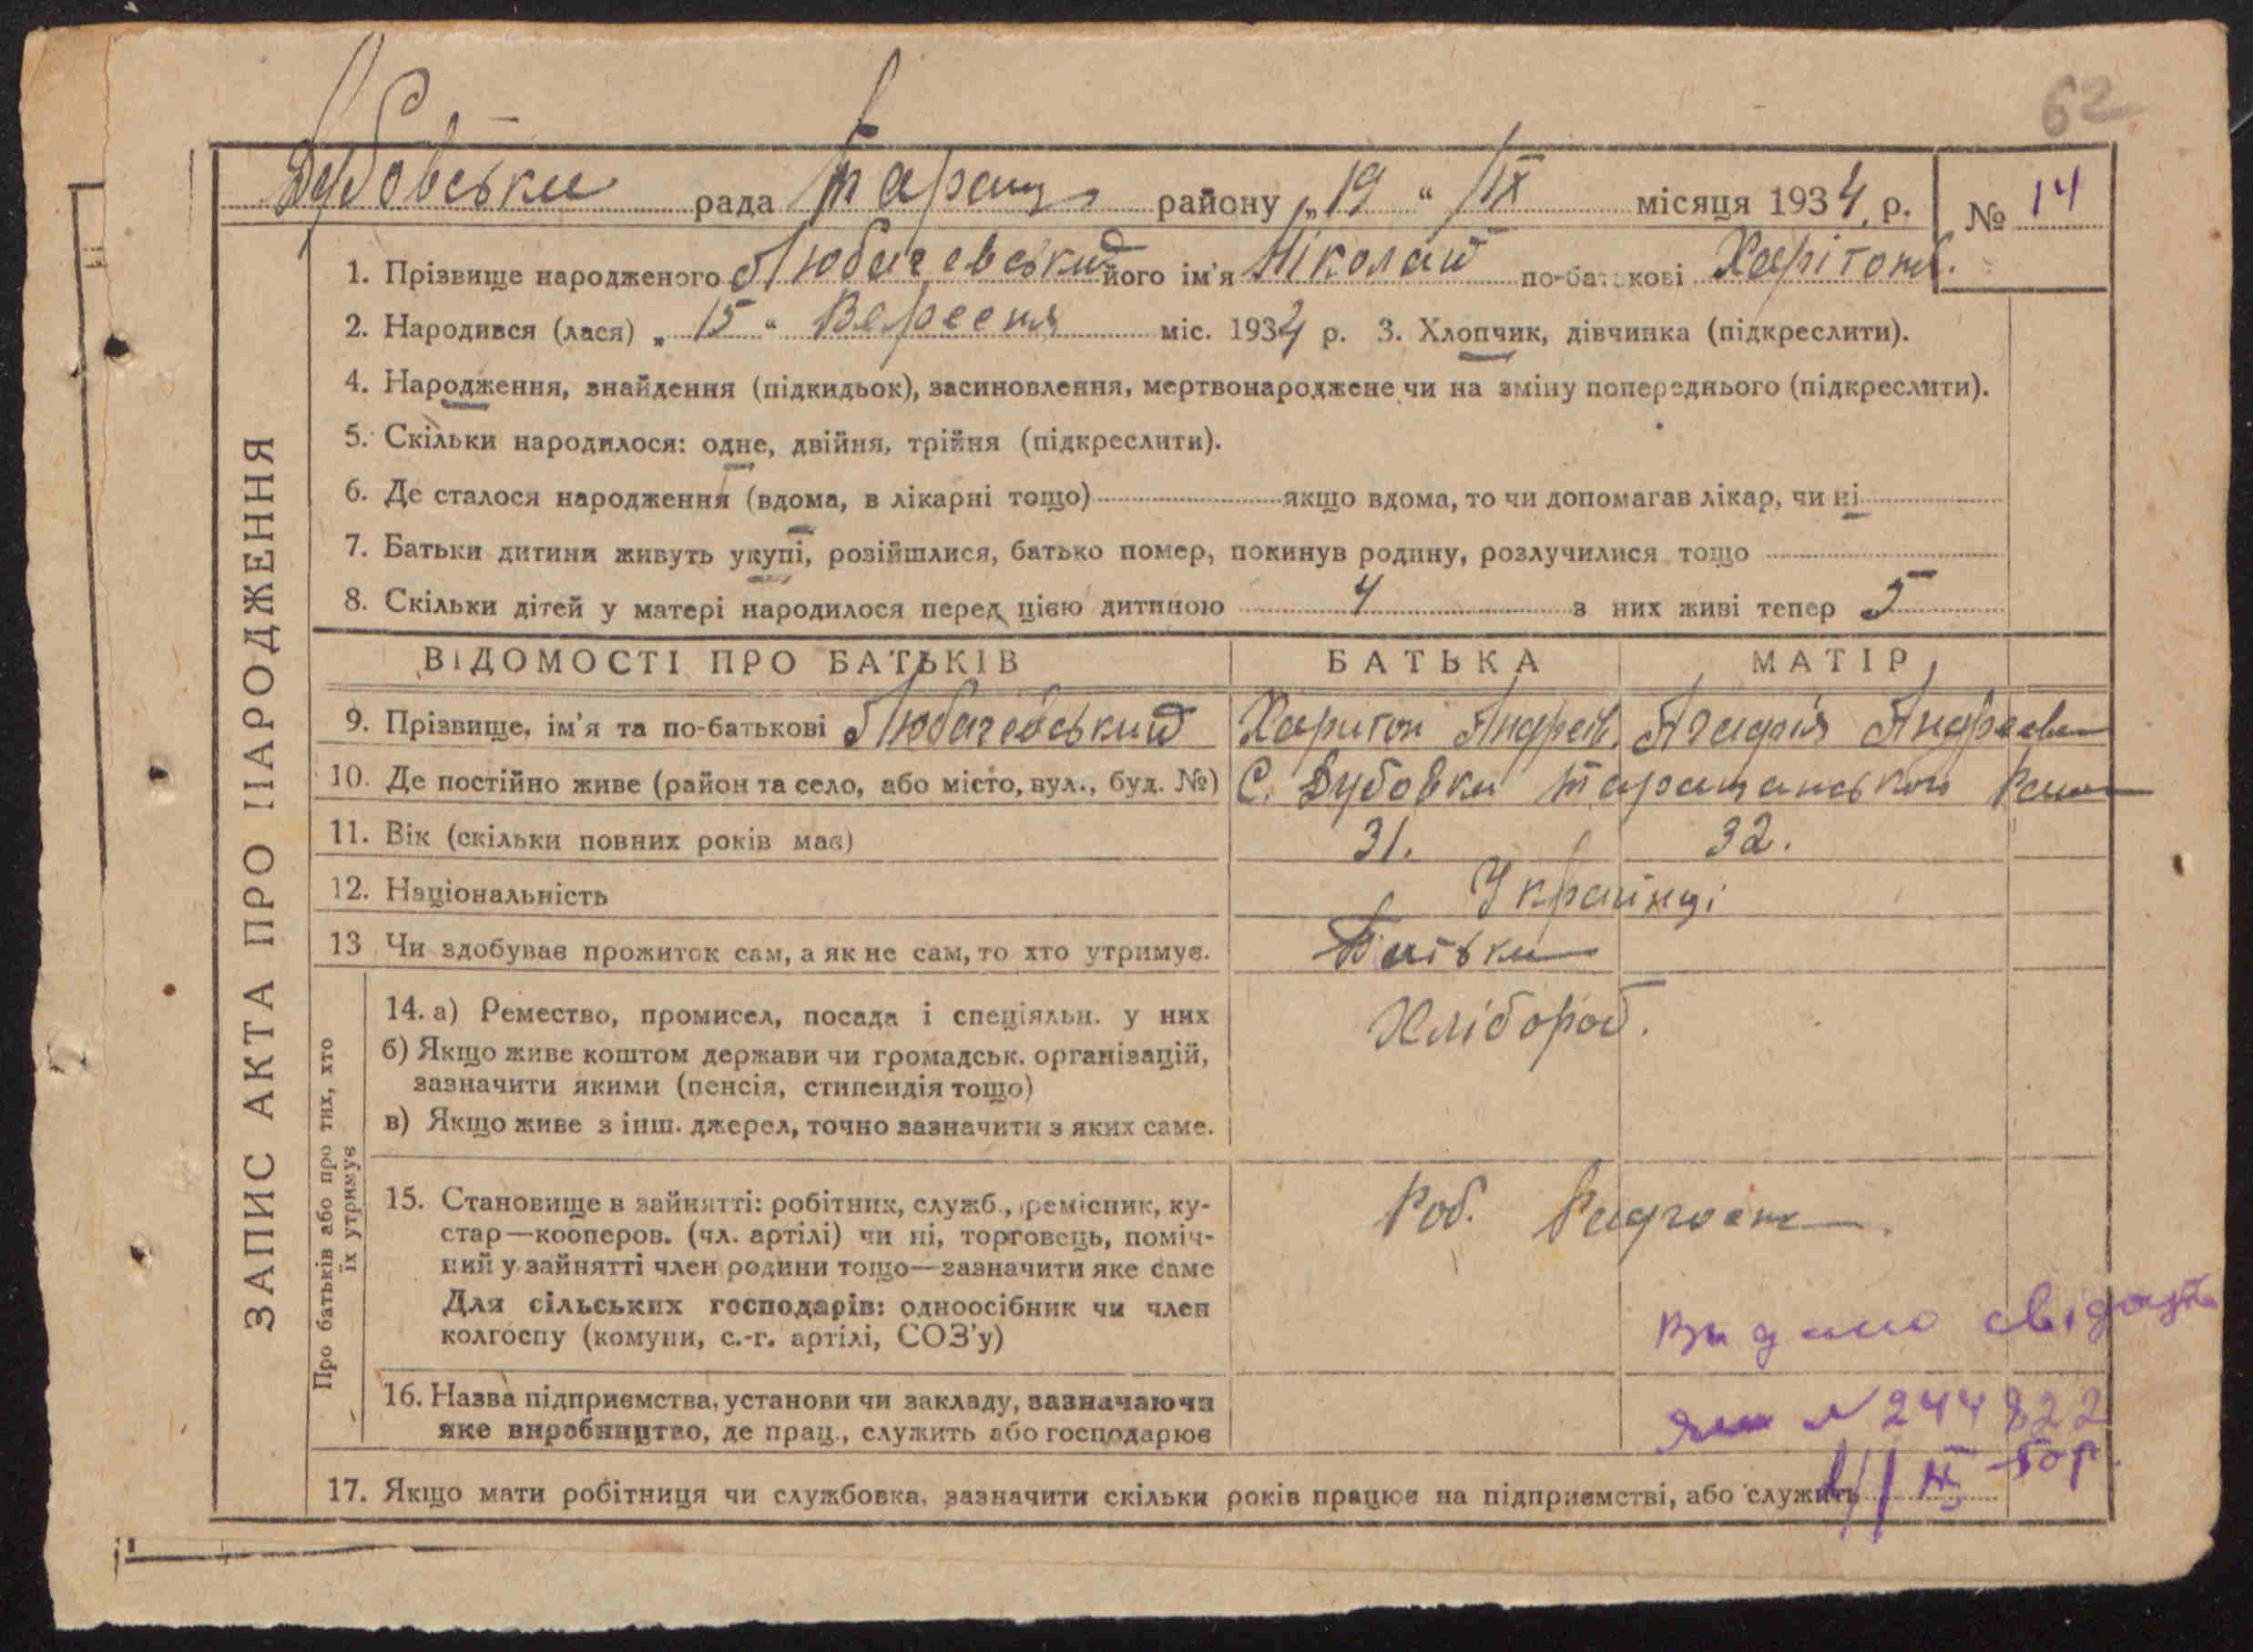 62
Дубовська рада Таращ. району „19“ IX місяця 1934 р. № 14
ЗАПИС АКТА ПРО НАРОДЖЕННЯ
1. Прізвище народженого Любачевський його ім'я Ніколай по-батькові Харітон.
2. Народився (лася) „15“ Вересня міс. 1934 р. 3. Хлопчик, дівчинка (підкреслити).
4. Народження, знайдення (підкидьок), засиновлення, мертвонароджене чи на зміну попереднього (підкреслити).
5. Скільки народилося: одне, двійня, трійня (підкреслити).
6. Де сталося народження (вдома, в лікарні тощо) якщо вдома, то чи допомагав лікар, чи ні
7. Батьки дитини живуть укупі, розійшлися, батько помер, покинув родину, розлучилися тощо
8. Скільки дітей у матері народилося перед цією дитиною 4 з них живі тепер 5
ВІДОМОСТІ ПРО БАТЬКІВ БАТЬКА МАТІР
9. Прізвище, ім'я та по-батькові Любачевський Харитон Андреїв. Андреевна
10. Де постійно живе (район та село, або місто, вул., буд. №) С. Дубовка Таращанськои
11. Вік (скільки повних років має) 31. 32.
12. Національність Українці
13 Чи здобуває прожиток сам, а як не сам, то хто утримує. Батьки
Про батьків або про тих, хто
їх утримує
14. а) Ремество, промисел, посада і спеціяльн. у них Хлібороб.
б) Якщо живе коштом держави чи громадськ. організацій,
зазначити якими (пенсія, стипендія тощо)
в) Якщо живе з інш. джерел, точно зазначити з яких саме.
15. Становище в зайнятті: робітник, служб., ремісник, ку- Роб. Радгосп
стар—кооперов. (чл. артілі) чи ні, торговець, поміч-
ний у зайнятті член родини тощо—зазначити яке саме
Для сільських господарів: одноосібник чи член
колгоспу (комуни, с.-г. артілі, СОЗ'у)
Видано свідоцтв
16. Назва підприємства, установи чи закладу, зазначаючи
яке виробництво, де прац., служить або господарює
N 244822
17. Якщо мати робітниця чи службовка, зазначити скільки років працює на підприємстві, або служить